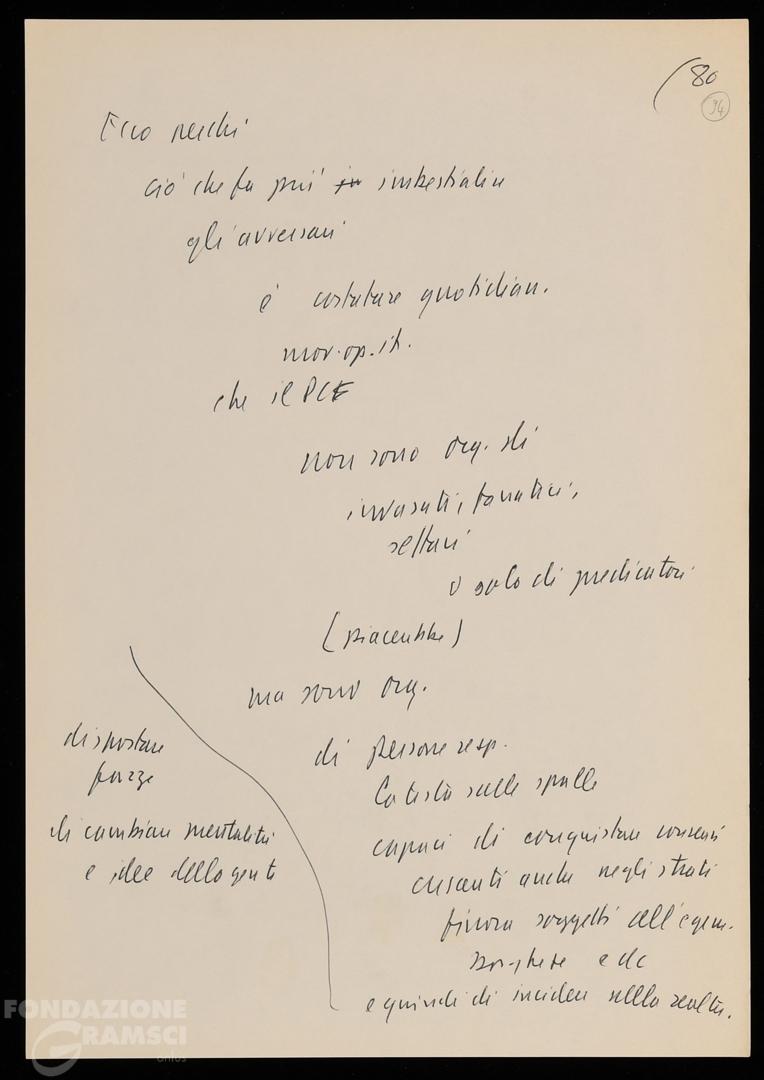 80
94
Ecco perché
ciò che fa più in imbestialire
gli avversari
è constatare quotidian.
mov. op. it.
che il PCI
non sono org. di
invasati, fanatici,
settari
o solo di predicatori
(piacerebbe)
ma sono org.
di persone resp.
la testa sulle spalle
capaci di conquistare consensi
crescenti anche negli strati
finora soggetti all'egem.
borghese e dc
e quindi di incidere nella realtà.
di spostare
forze
di cambiare mentalità
e idee della gente
FONDAZIONE
GRAMSCI
onlus